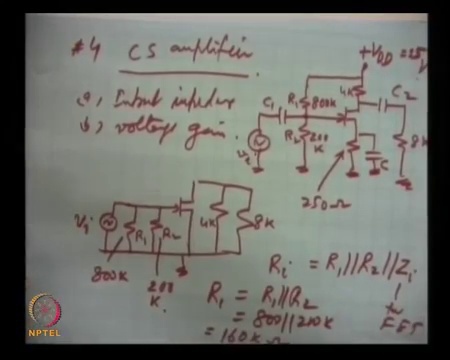 #4 CS amplifier
+VDD = 25V
a, Input impedance
b, voltage gain.
C1
R1
800K
4K
C2
R2
200
K
vi
C
8K
250Ω
Vi
R1
R2
4K
8K
800K
200
K.
Ri = R1||R2||Zi
FET
R1 = R1||R2
= 800||200K
= 160K Ω
NPTEL